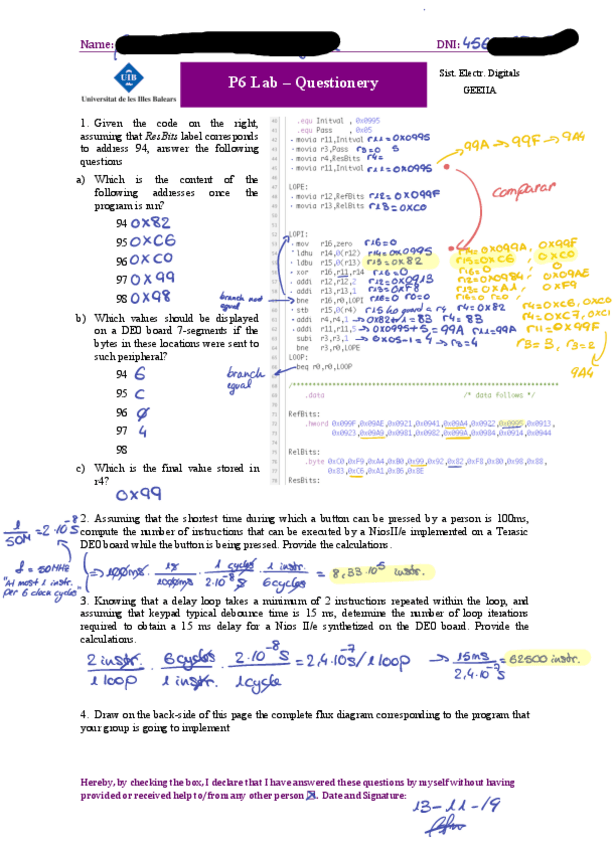 Name:
DNI: 456
UIB
Universitat de les Illes Balears
P6 Lab – Questionery
Sist. Electr. Digitals
GEEIIA
1. Given the code on the right,
assuming that ResBits label corresponds
to address 94, answer the following
questions
a) Which is the content of the
following addresses once the
program is run?
94 0x82
95 0xC6
96 0xC0
97 0x99
98 0x98
b) Which values should be displayed
on a DE0 board 7-segments if the
bytes in these locations were sent to
such peripheral?
94 6
95 C
96 0
97 4
98
c) Which is the final value stored in
r4?
0x99
.equ Initval , 0x0995
.equ Pass , 0x05
movia r11,Initval r11=0x0995
movia r3,Pass r3=0 5
movia r4,ResBits r4=
movia r11,Initval r11=0x0995
99A → 99F → 9A4
comparar
LOPE:
movia r12,RefBits r12=0x099F
movia r13,RelBits r13=0xC0
LOPI:
mov r16,zero r16=0
ldhu r14,0(r12) r14=0x0995 r14=0x099A, 0x99F
ldbu r15,0(r13) r15=0x82 r15=0xC6, 0xC0
xor r16,r11,r14 r16=0 r16=0 0
addi r12,r12,2 r12=0x0913 r12=0x0984 0x09AE
addi r13,r13,1 r13=0xF8 r13=0xA1, 0xF9
bne r16,r0,LOPI r16=0 r0=0 r16=0 r0=0
branch not
equal
stb r15,0(r4) r15 lo guard = r4 r4=0x82 r4=0xC6, 0xC0
addi r4,r4,1 → 0x82+1=83 r4=83 r4=0xC7, 0xC1
addi r11,r11,5 → 0x0995+5=99A r11=99A r11=0x99F
subi r3,r3,1 → 0x05-1=4 → r3=4 r3=3, r3=2
bne r3,r0,LOPE
9A4
LOOP:
beq r0,r0,LOOP
branch
equal
.data /* data follows */
RefBits:
.hword 0x099F,0x09AE,0x0921,0x0941,0x09A4,0x0922,0x0995,0x0913,
0x0923,0x09A9,0x0981,0x0982,0x099A,0x0984,0x0914,0x0944
RelBits:
.byte 0xC0,0xF9,0xA4,0xB0,0x99,0x92,0x82,0xF8,0x80,0x98,0x88,
0x83,0xC6,0xA1,0x86,0x8E
ResBits:
2. Assuming that the shortest time during which a button can be pressed by a person is 100ms,
compute the number of instructions that can be executed by a NiosII/e implemented on a Terasic
DE0 board while the button is being pressed. Provide the calculations.
1/50M = 2·10⁻⁸ s
f = 50MHz
"At most 1 instr.
per 6 clock cycles"
⇒ 100ms · 1s/1000ms · 1 cycles/2·10⁻⁸ s · 1 instr./6 cycles = 8,33·10⁵ instr.
3. Knowing that a delay loop takes a minimum of 2 instructions repeated within the loop, and
assuming that keypad typical debounce time is 15 ms, determine the number of loop iterations
required to obtain a 15 ms delay for a Nios II/e synthetized on the DE0 board. Provide the
calculations.
2 instr./1 loop · 6 cycles/1 instr. · 2·10⁻⁸ s/1 cycle = 2,4·10⁻⁷ s/1 loop → 15ms/2,4·10⁻⁷ = 62500 instr.
4. Draw on the back-side of this page the complete flux diagram corresponding to the program that
your group is going to implement
Hereby, by checking the box, I declare that I have answered these questions by myself without having
provided or received help to/from any other person ☒. Date and Signature:
13-11-19